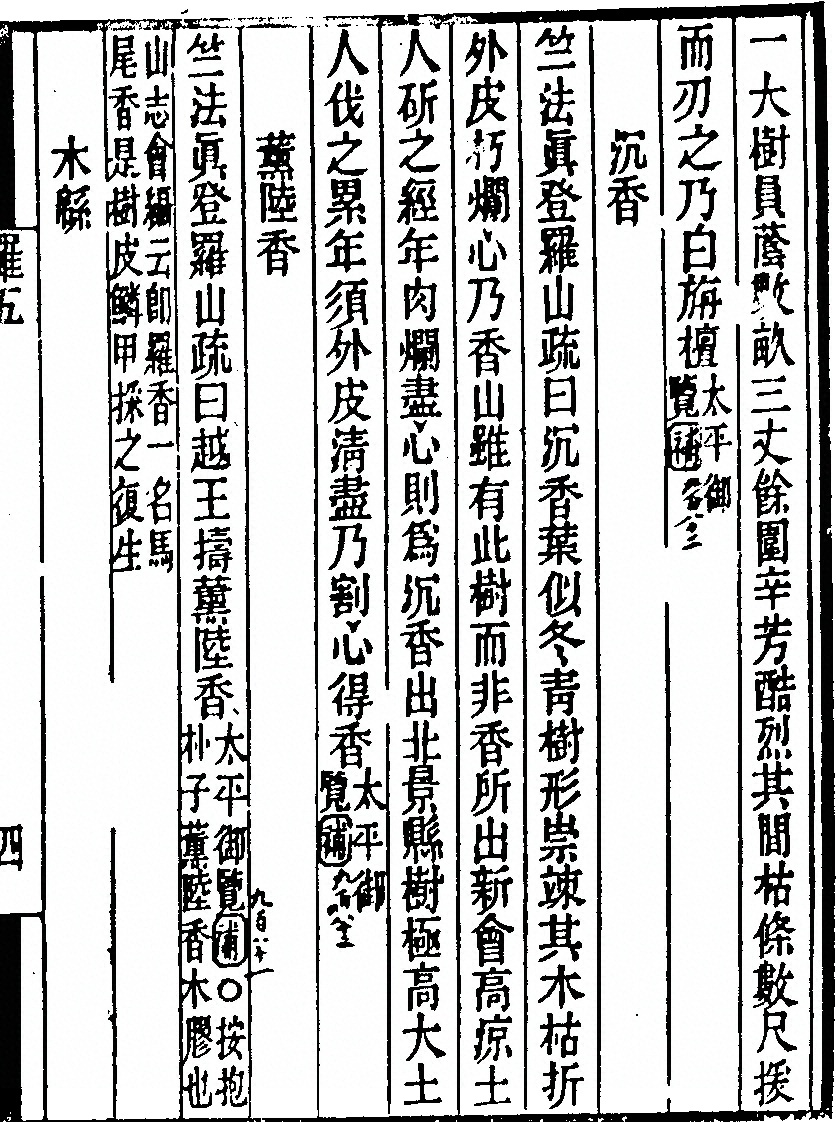 一大樹員蔭數畝三丈餘圍辛芳酷烈其間枯條數尺援
而刃之乃白旃檀太平御覽補九百八十二
沉香
竺法眞登羅山疏曰沉香葉似冬青樹形崇竦其木枯折
外皮朽爛心乃香山雖有此樹而非香所出新會高凉土
人斫之經年肉爛盡心則爲沉香出北景縣樹極高大土
人伐之累年須外皮淸盡乃割心得香太平御覽補九百八十二
薰陸香
竺法眞登羅山疏曰越王擣薰陸香太平御覽補○按抱
朴子薰陸香木膠也
九百八十一
山志會編云卽羅香一名馬
尾香是樹皮鱗甲採之復生
木緜
羅五
四